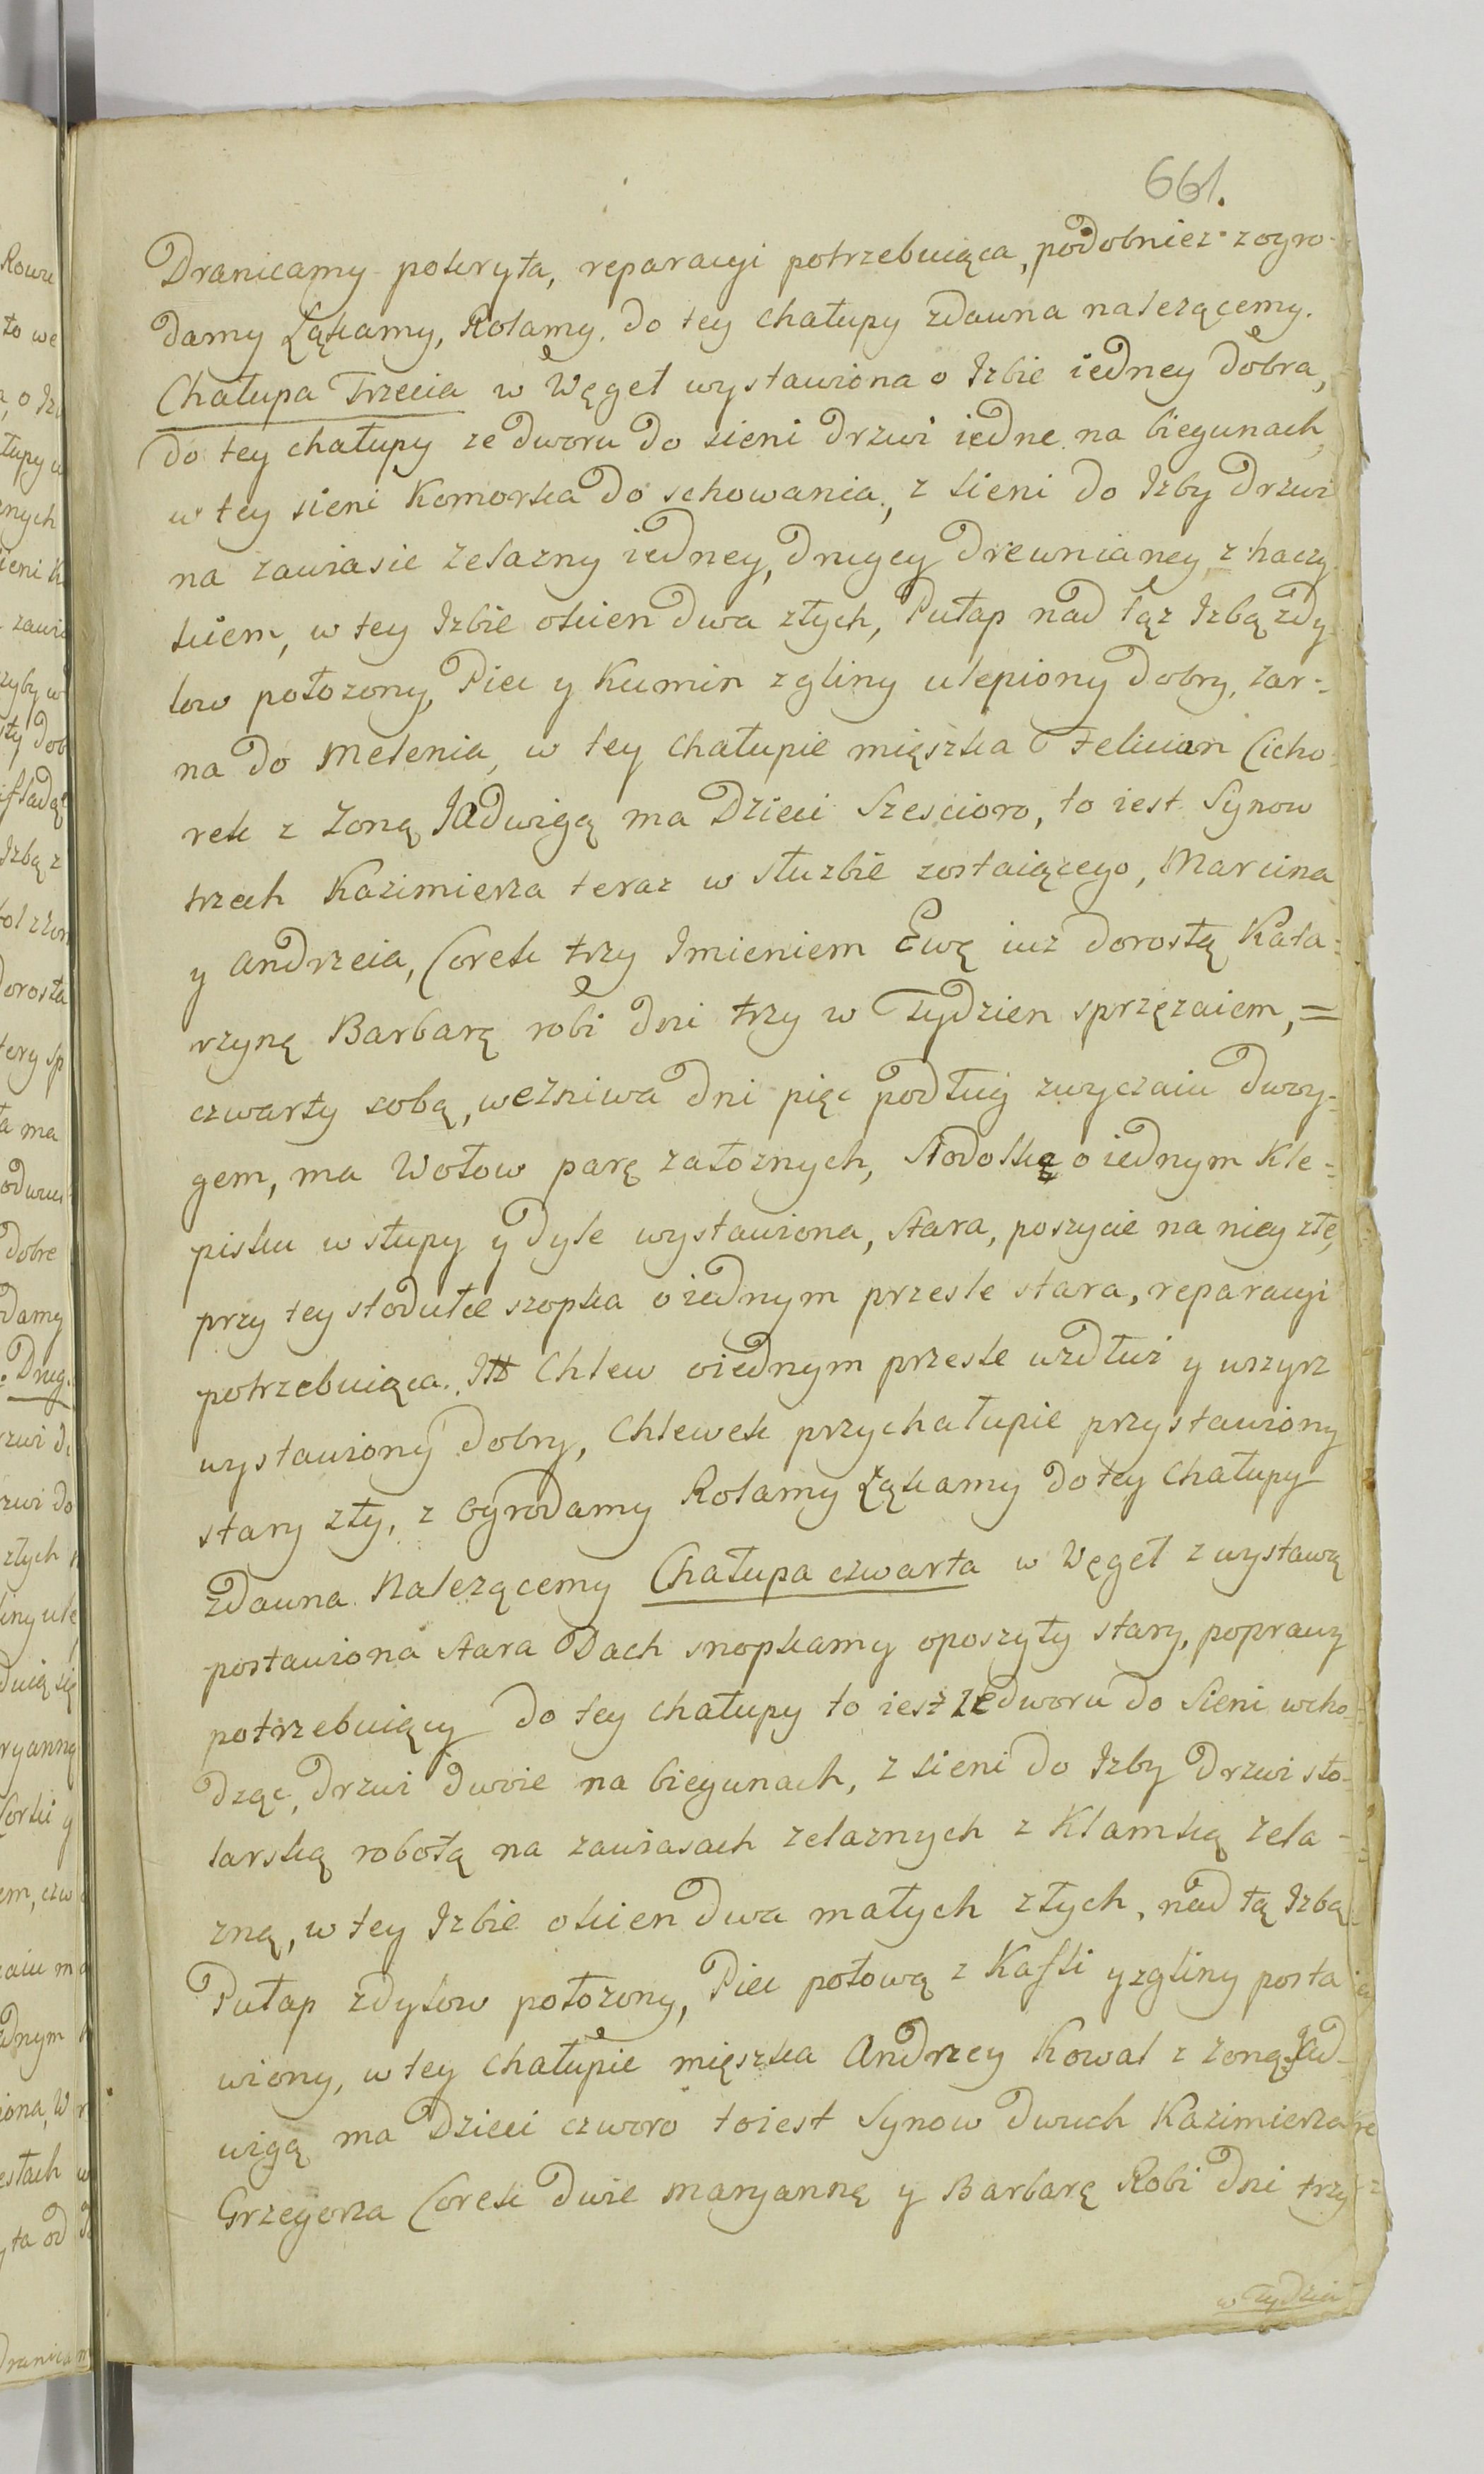 661.
Dranicamy pokryta, reparacyi potrzebuiąca, podobniez z ogro-
damy Łąkamy, Rolamy. do tey chałupy zdawna nalezącemy.
Chałupa Trzecia w Węgeł wystawiona o Izbie iedney dobra,
do tey chałupy ze dworu do sieni drzwi iedne na biegunach,
w tey sieni Komorka do schowania, z sieni do Izby drzwi
na zawiasie zelazny iedney, drugey drewnianey z haczy-
kiem, w tey Izbie okien dwa złych, Pułap nad tąz Izbą zdy-
low połozony, Piec y Kumin z gliny ulepiony dobry, zar-
na do Melenia, w tey chałupie mięszka Felician Cicho-
rek z Zoną Jadwigą ma Dzieci Szescioro, to iest Synow
trzech Kazimierza teraz w słuzbie zostaiącego, Marcina
y Andrzeia, Corek trzy Imieniem Ewę iuz dorosłą Kata-
rzynę Barbarę robi dni trzy w Tydzien sprzęzaiem, =
czwarty sobą, wezniwa dni pięc podług zwyczaiu dwoy-
gem, ma Wołow parę załoznych, Stodołkę o iednym Kle-
pisku w słupy y dyle wystawiona, stara, poszycie na niey złe,
przy tey stodułce szopka o iednym przesle stara, reparacyi
potrzebuiąca. Chlew oiednym przesle wzdłuz y wszyrz
wystawiony dobry, Chlewek przychałupie przystawiony
stary zły, z Ogrodamy Rolamy Łąkamy do tey Chałupy
zdawna Nalezącemy Chałupa czwarta w Węgeł z wystawą
postawiona stara Dach snopkamy oposzyty stary, poprawy
potrzebuiący do tey chałupy to iest ze dworu do Sieni wcho-
dząc, drzwi dwoie na biegunach, z sieni do Izby drzwi sto-
larską robotą na zawiasach zelaznych z Klamką zela-
zną, w tey Izbie okien dwa małych złych, nad tą Izbą
Pułap zdylow połozony, Piec połową z Kafli y zgliny posta
wiony, w tey chałupie mięszka Andrzey Kowal z zoną Jad-
wigą ma Dzieci czworo toiest Synow dwuch Kazimierza
Grzegorza Corek dwie Maryannę y Barbarę Robi dni trzy
w Tydzien